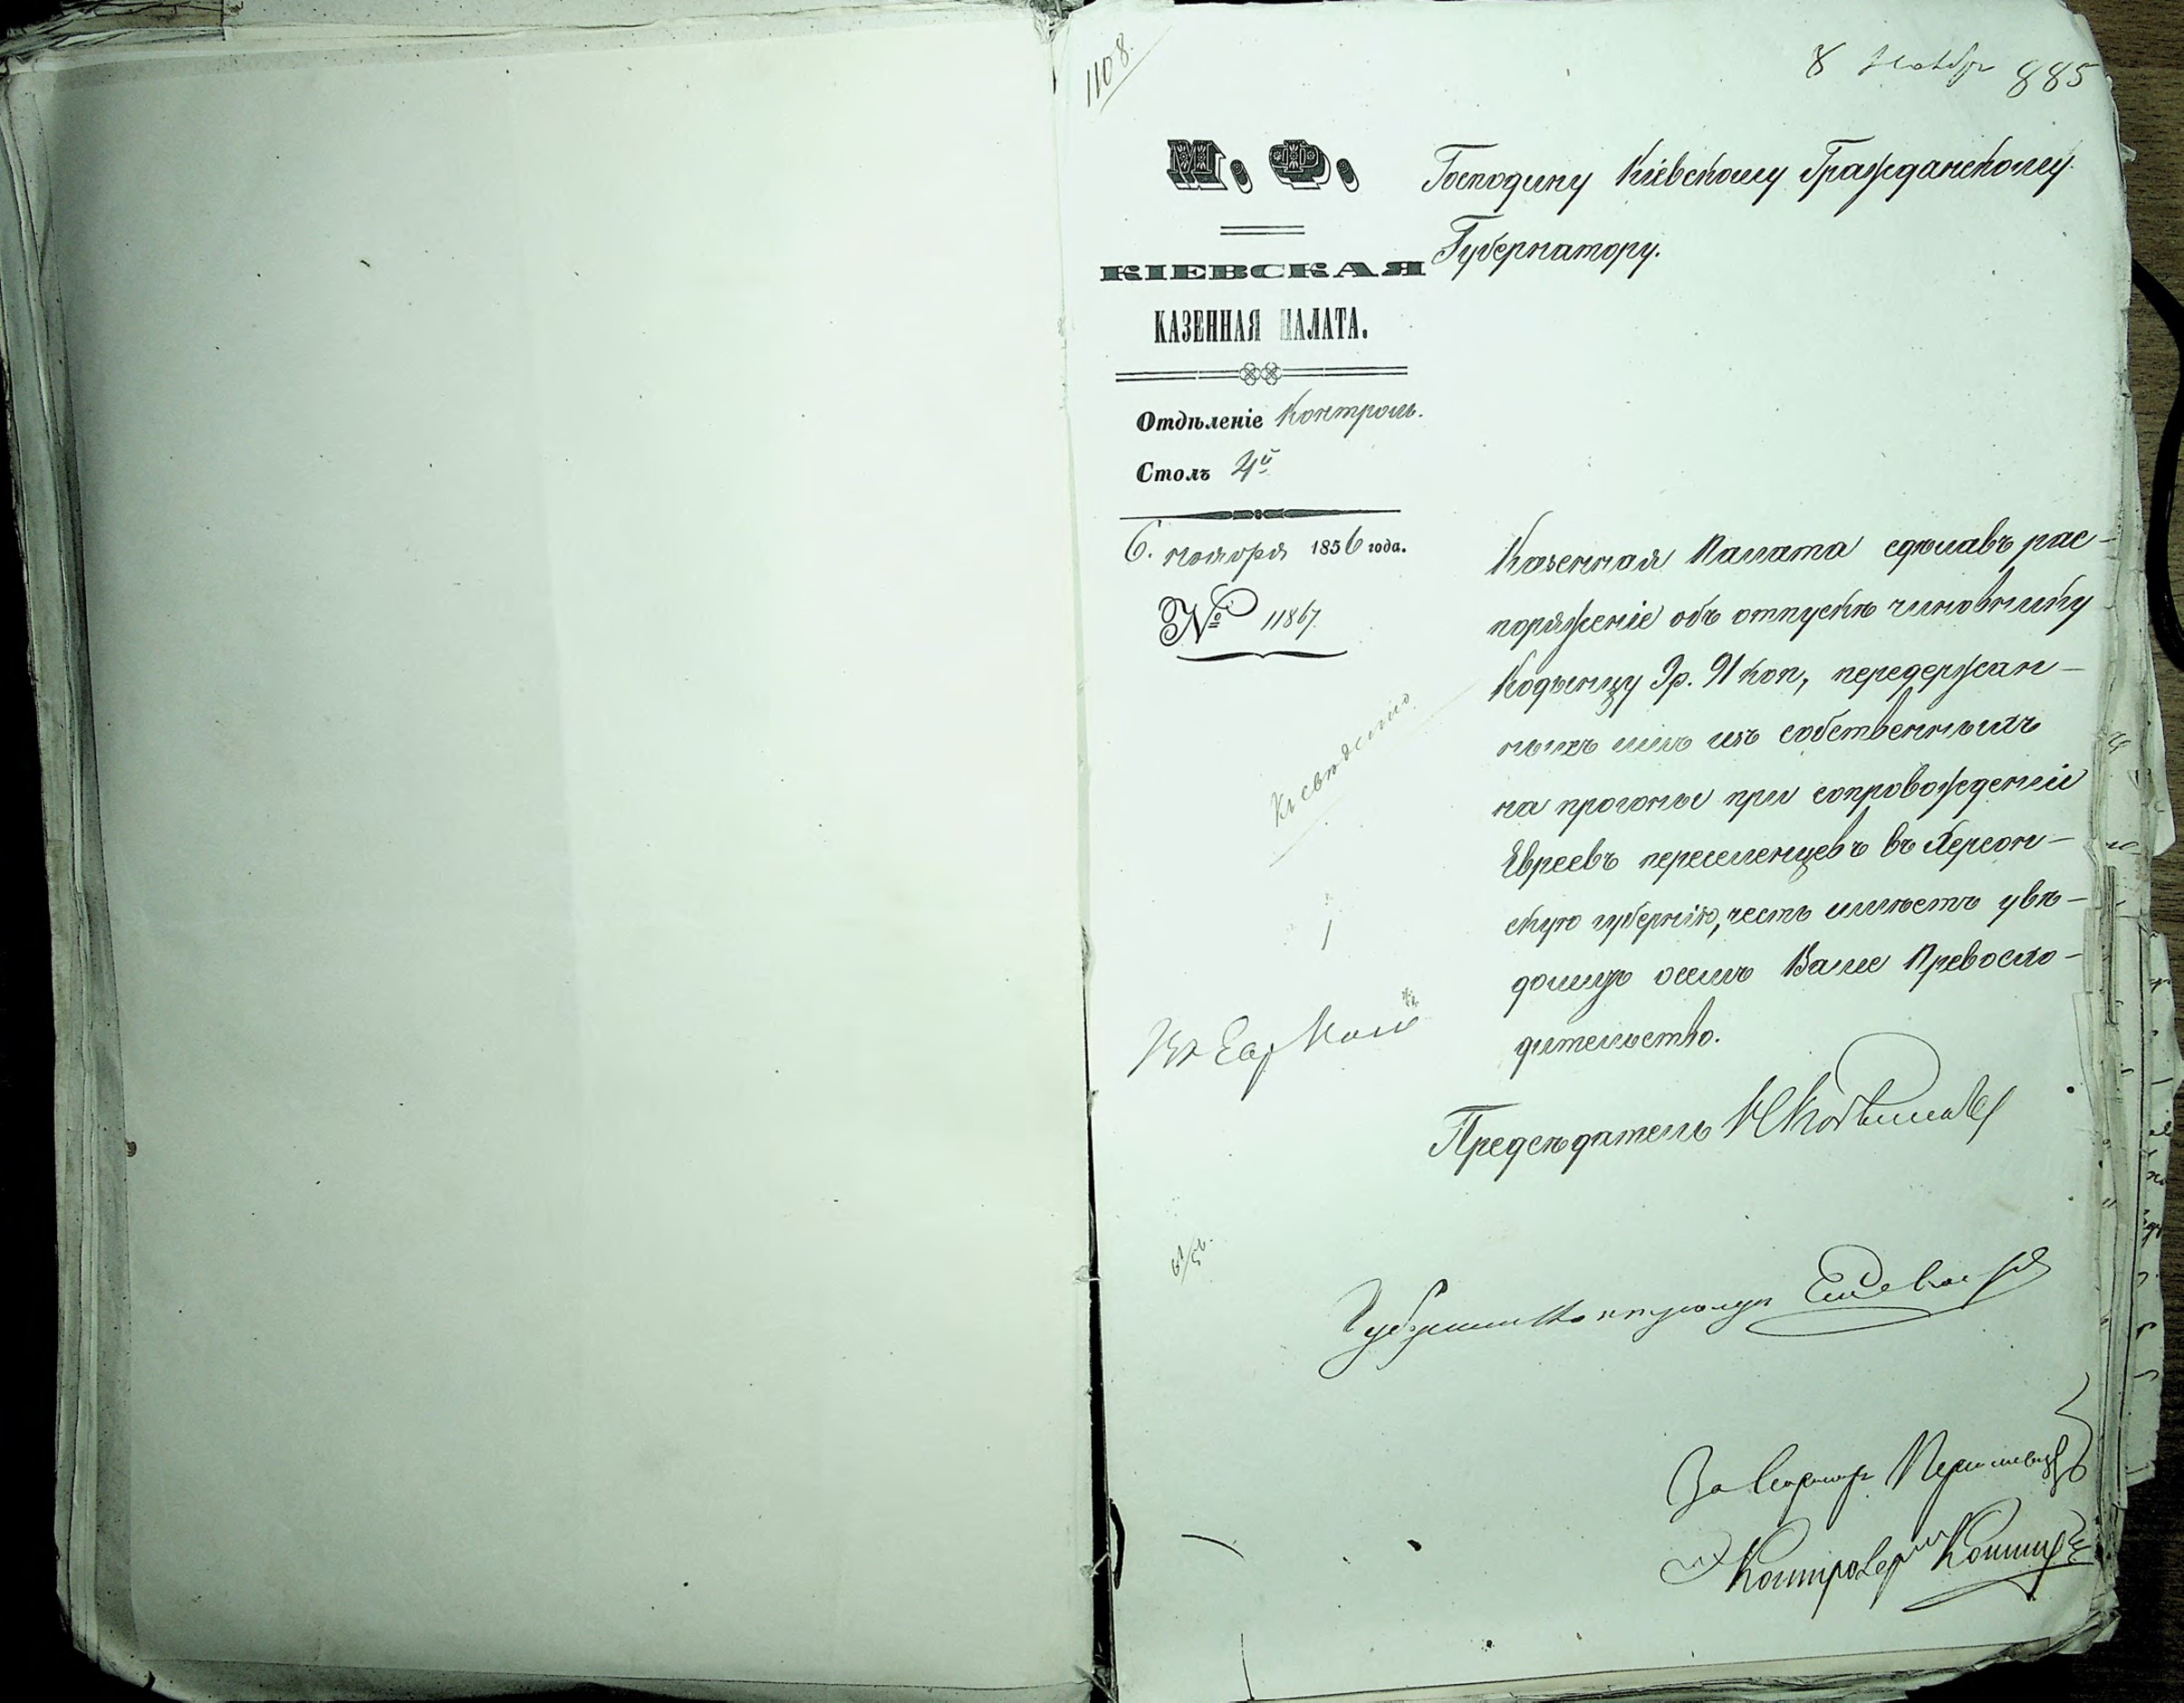 1108.
8 Ноября 885
М. Ф.
КІЕВСКАЯ
КАЗЕННАЯ ПАЛАТА.
Отдѣленіе Контроль.
Столъ 4й
6. ноября 1856 года.
№ 11867
Господину Кіевскому Гражданскому
Губернатору.
Казенная Палата сдѣлавъ рас-
поряженіе объ отпускѣ чиновнику
Кодынцу 3р. 91 коп, передержан-
ныхъ имъ изъ собственныхъ
на прогоны при сопровожденіи
Евреевъ переселенцевъ въ Херсон-
скую губернію, честь имѣетъ увѣ-
домить о семъ Ваше Превосхо-
дительство.
Къ свѣденію
Предсѣдатель
Губернскій Контролеръ
За Секретаря
Контролер